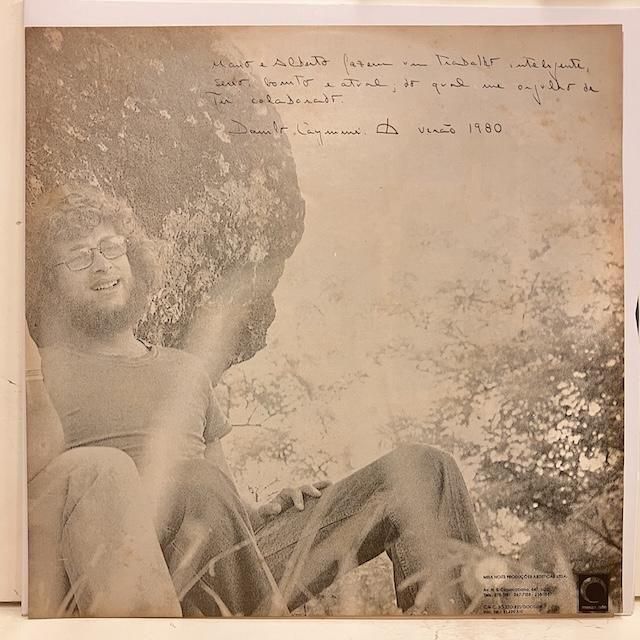 Mario e Alberto fazem um trabalho inteligente,
sério, bonito e atual, do qual me orgulho de
ter colaborado.
Danilo Caymmi. verão 1980
MEIA NOITE PRODUÇÕES ARTÍSTICAS LTDA.